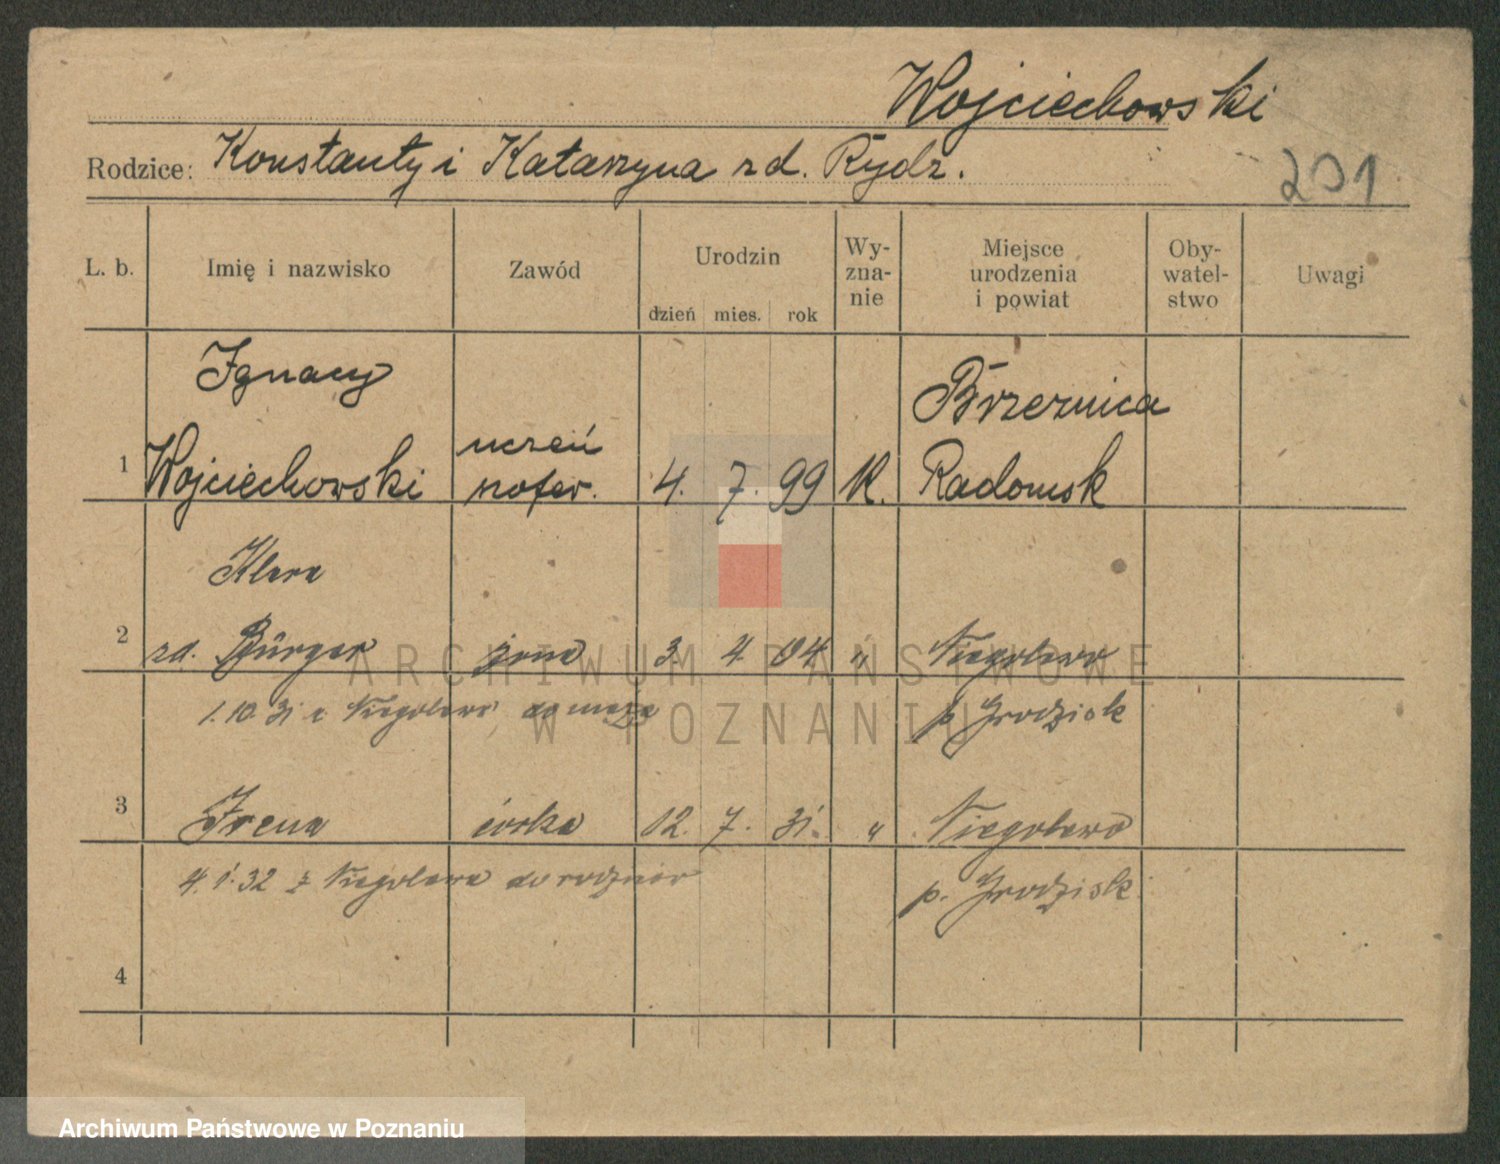 Wojciechowski
Rodzice: Konstanty i Katarzyna zd. Rydz.
201
L. b. Imię i nazwisko Zawód Urodzin dzień mies. rok Wy-zna-nie Miejsce urodzenia i powiat Oby-watel-stwo Uwagi
Ignacy Brzeznica
uczeń
1 Wojciechowski 4. 7. 99 R. Radomsk
Klara
2 zd. Bürger żona 3. 4. 04 " Niegolewo
1.10.31 z Niegolewa do męża p. Grodzisk
3 Irena córka 12. 7. 31. " Niegolewo
4.1.32 z Niegolewa do rodziców p. Grodzisk
4
ARCHIWUM PAŃSTWOWE
W POZNANIU
Archiwum Państwowe w Poznaniu